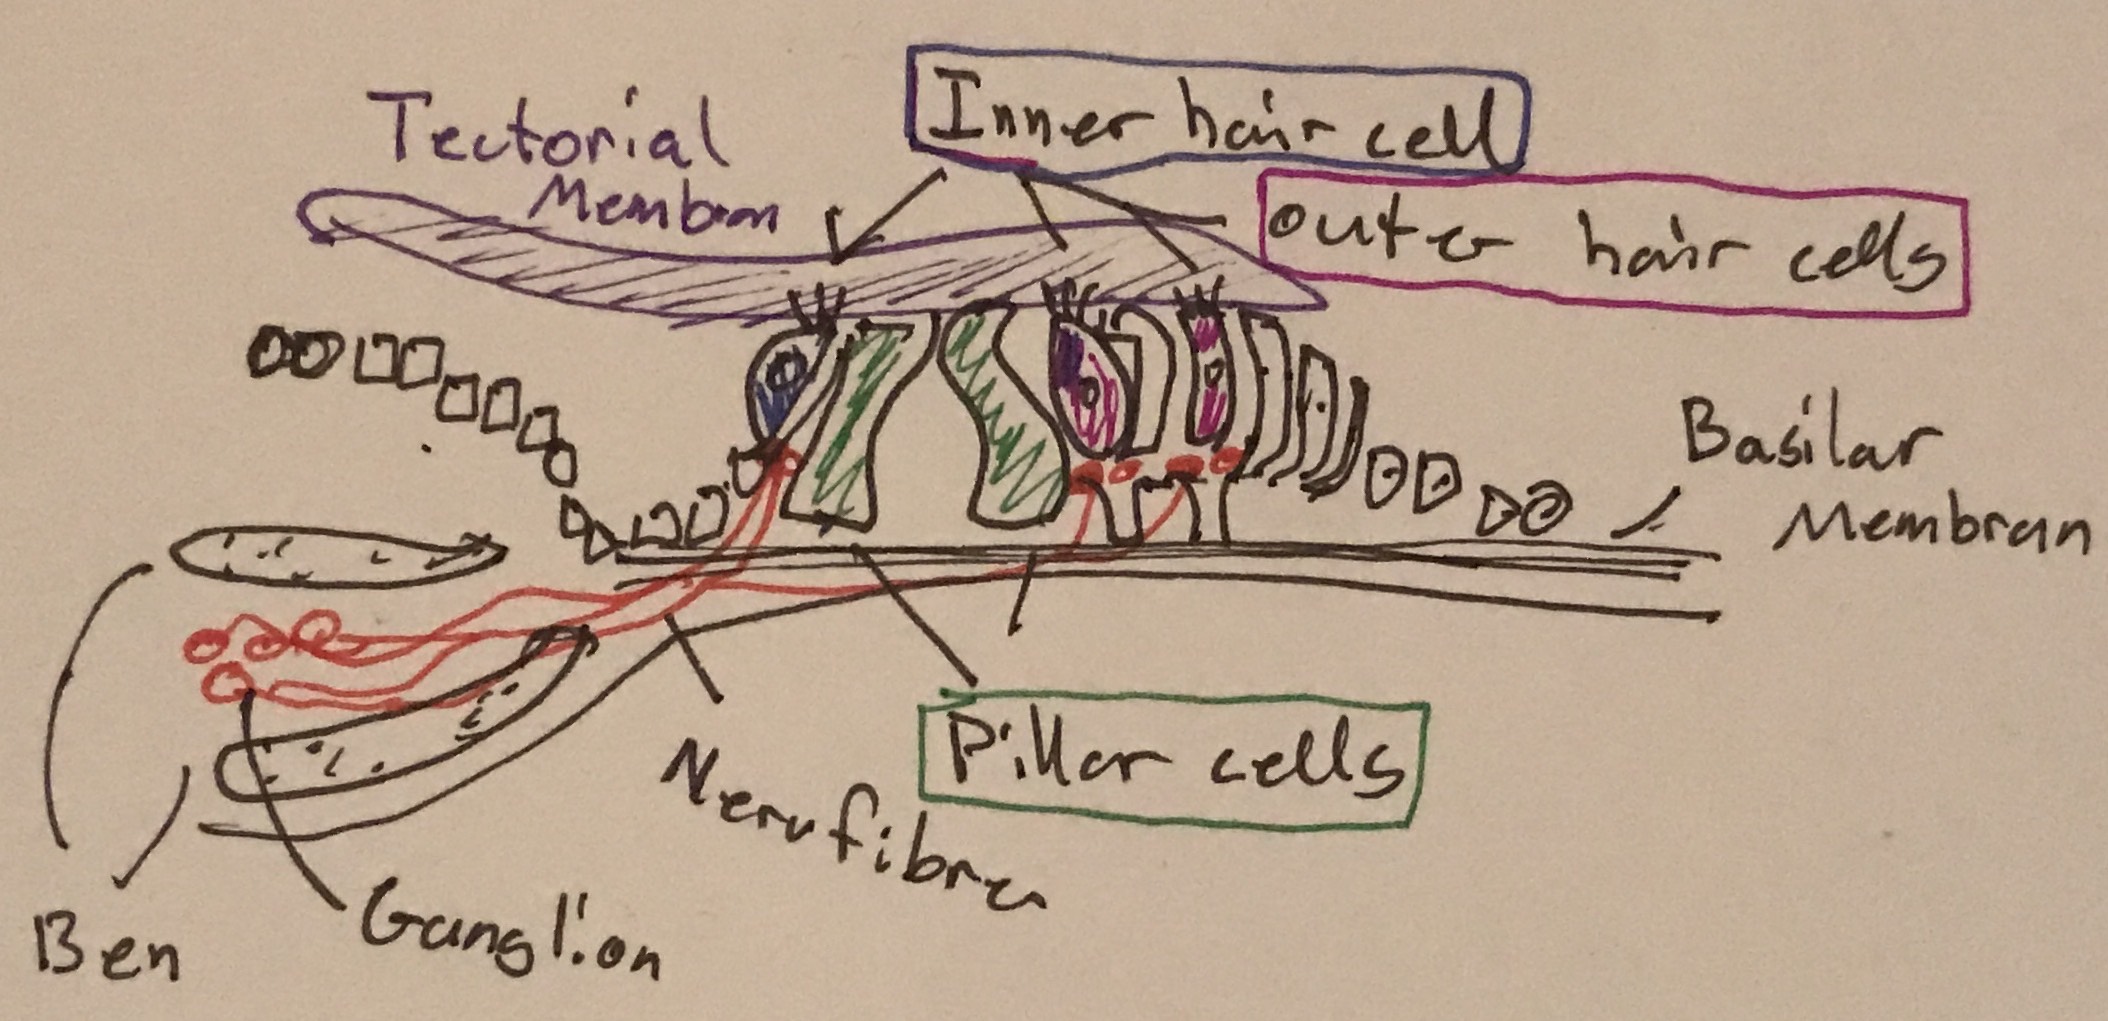 Inner hair cell
Tectorial
Membran
outer hair cells
Basilar
Membran
Pillar cells
Nervfibrer
Ganglion
Ben